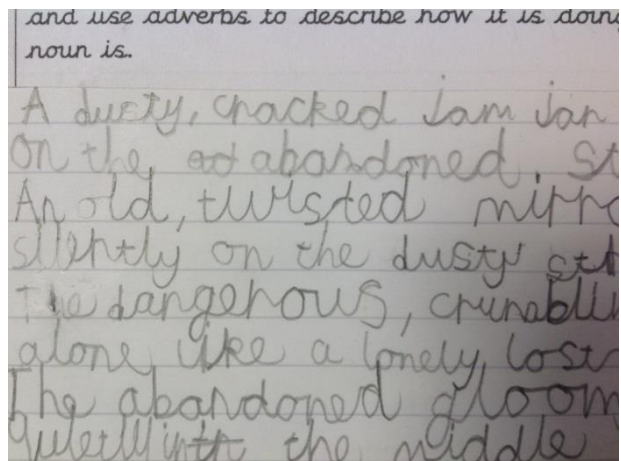 and use adverbs to describe how it is doing
noun is.
A dusty, cracked jam jar
on the abandoned. st
An old, twisted mirro
silently on the dusty st
The dangerous, crumbli
alone like a lonely, lost
The abandoned gloom
quietly in the middle